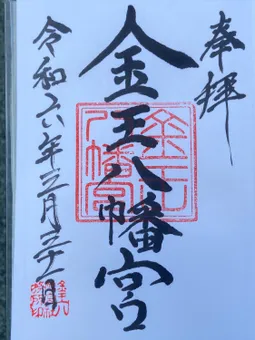 奉拝
金王八幡宮
金王
八幡宮
令和六年三月三十一日